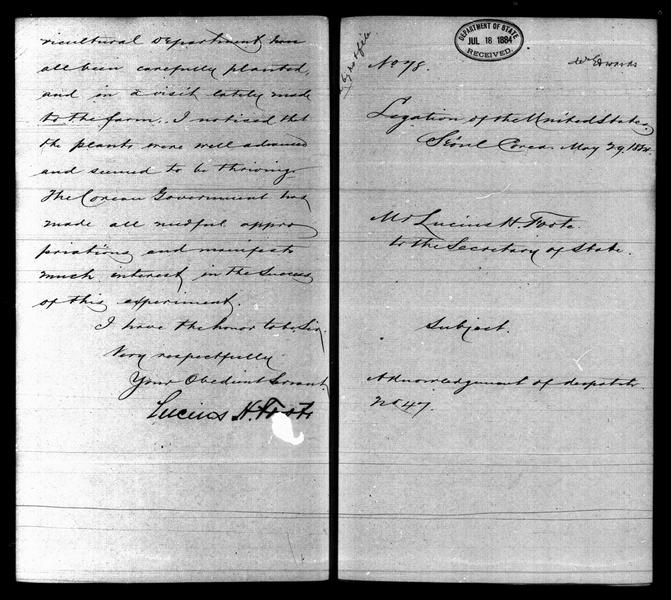 ricultural Department have
all been carefully planted,
and in a visit lately made
to the farm, I noticed that
the plants were well advanced
and seemed to be thriving.
The Corean Government has
made all needful appro
priations and manifests
much interest in the success
of this experiment.
I have the honor to be, Sir,
Very respectfully
Your Obedient Servant,
Lucius H. Foote
DEPARTMENT OF STATE,
JUL 18 1884
RECEIVED.
No 78.
Legation of the United States,
Seoul Corea. May 29, 1884.
Mr Lucius H. Foote.
to the Secretary of State.
Subject.
Acknowledgement of despatch
No 47.